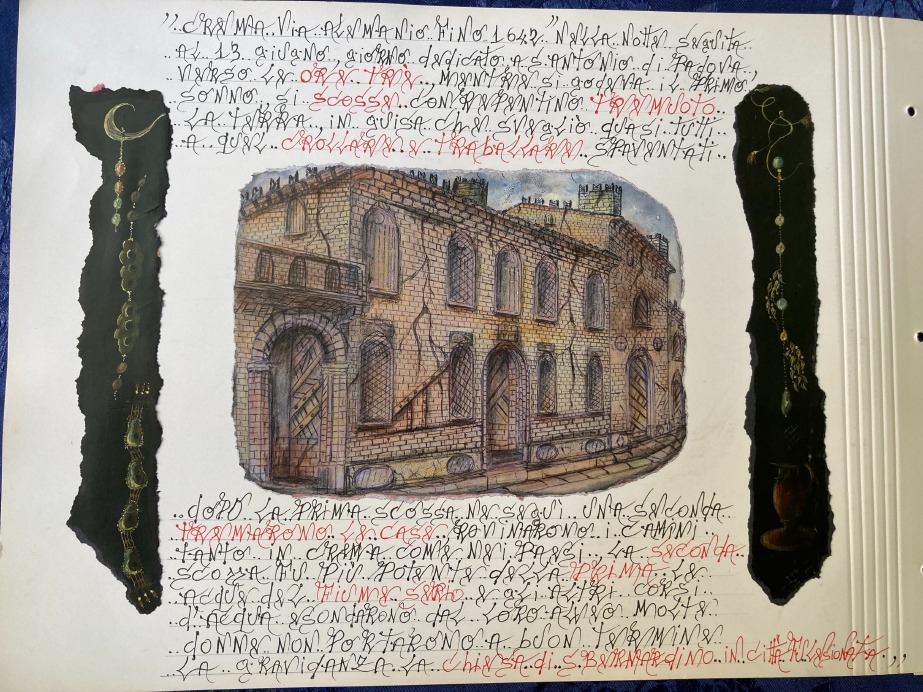 ,, CREMA VIA ALEMANIO FINO 1642 '' NELLA NOTTE SEGUITA
AL 13 giugno, giorno dedicato A S. ANTONIO di PADOVA
VERSO LE ORE TRE, MENTRE Si godeva il PRIMO
SONNO, Si SCOSSE CON REPENTINO TREMUOTO
LA TERRA, in guisa CHE SVEGLIÒ QUASI TUTTI
A QUEL CROLLARE E TRABALLARE SPAVENTATI
dOPO LA PRIMA SCOSSA NE SEGUÌ UNA SECONDA
TREMARONO LE CASE, ROVINARONO I CAMINI
TANTO IN CREMA COME NEI PAESI. LA SECONDA
SCOSSA FU PIÙ POTENTE dELLA PRIMA LE
ACQUE dEL FIUME SERIO E gLI ALTRI CORSI
d'ACQUA ESONDARONO DAL LORO ALVEO MOLTE
dONNE NON PORTARONO A BUON TERMINE
LA GRAVIDANZA LA CHIESA di S BERNARDINO in CITTÀ FU LESIONATA ,,